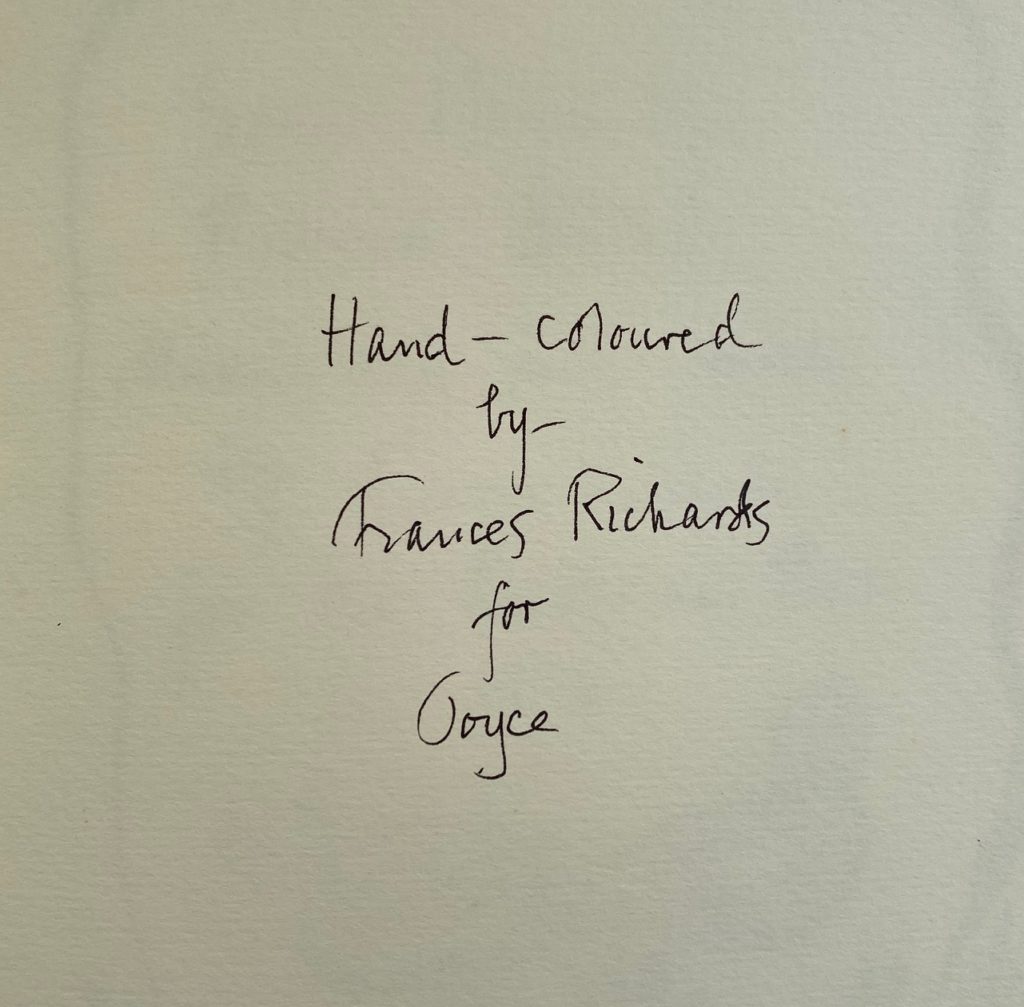 Hand - coloured
by
Frances Richards
for
Joyce